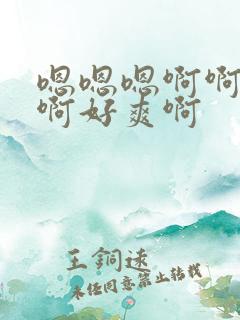 嗯嗯嗯啊啊
啊好爽啊
王铜逐
未经同意禁止转载